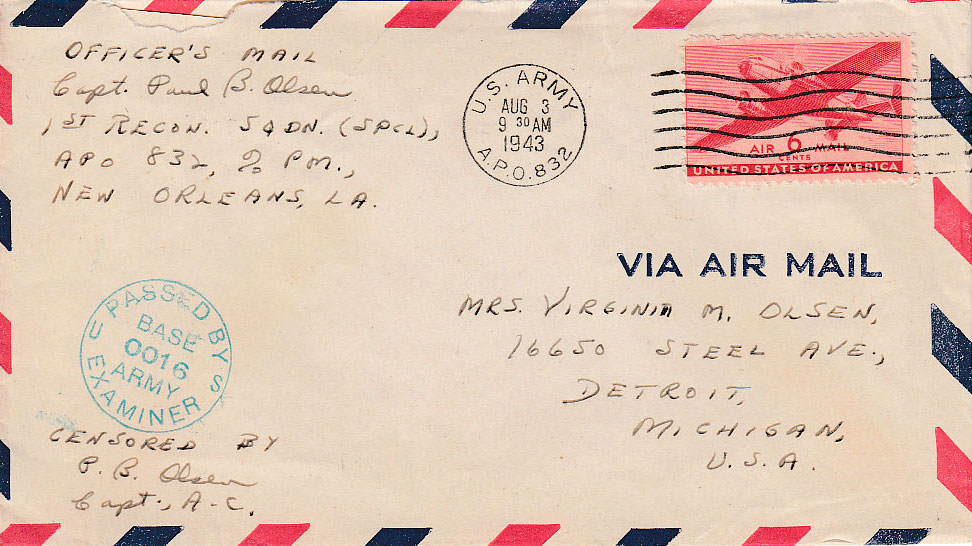 OFFICER'S MAIL
Capt. Paul B. Olsen
1ST RECON. SQDN. (SPCL),
APO 832, % PM.,
NEW ORLEANS, LA.
U.S. ARMY
AUG 3
9 30 AM
1943
A.P.O. 832
AIR 6 MAIL
CENTS
UNITED STATES OF AMERICA
VIA AIR MAIL
MRS. VIRGINIA M. OLSEN,
16650 STEEL AVE.,
DETROIT,
MICHIGAN,
U.S.A.
PASSED BY
U S
BASE
0016
ARMY
EXAMINER
CENSORED BY
P. B. Olsen
Capt., A-C.